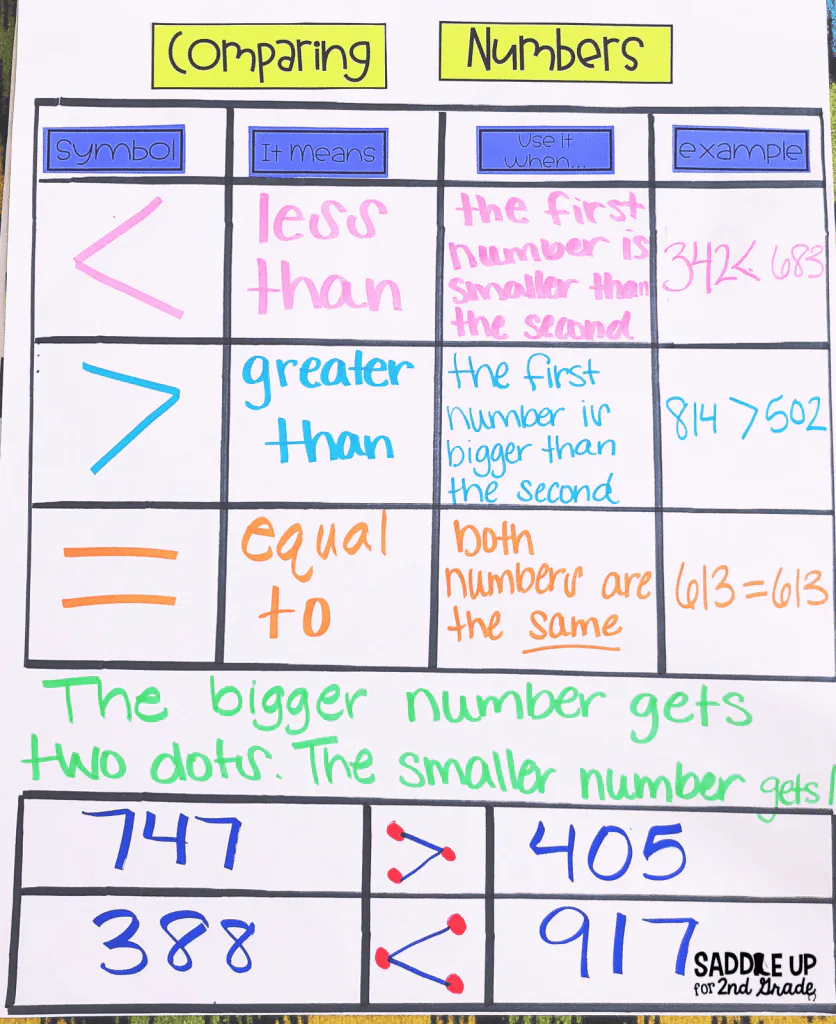 Comparing Numbers
Symbol
It means
Use it
when...
example
<
less
than
the first
number is
smaller than
the second
342 < 683
>
greater
than
the first
number is
bigger than
the second
814 > 502
=
equal
to
both
numbers are
the same
613 = 613
The bigger number gets
two dots. The smaller number gets 1
747 > 405
388 < 917
SADDLE UP
for 2nd Grade